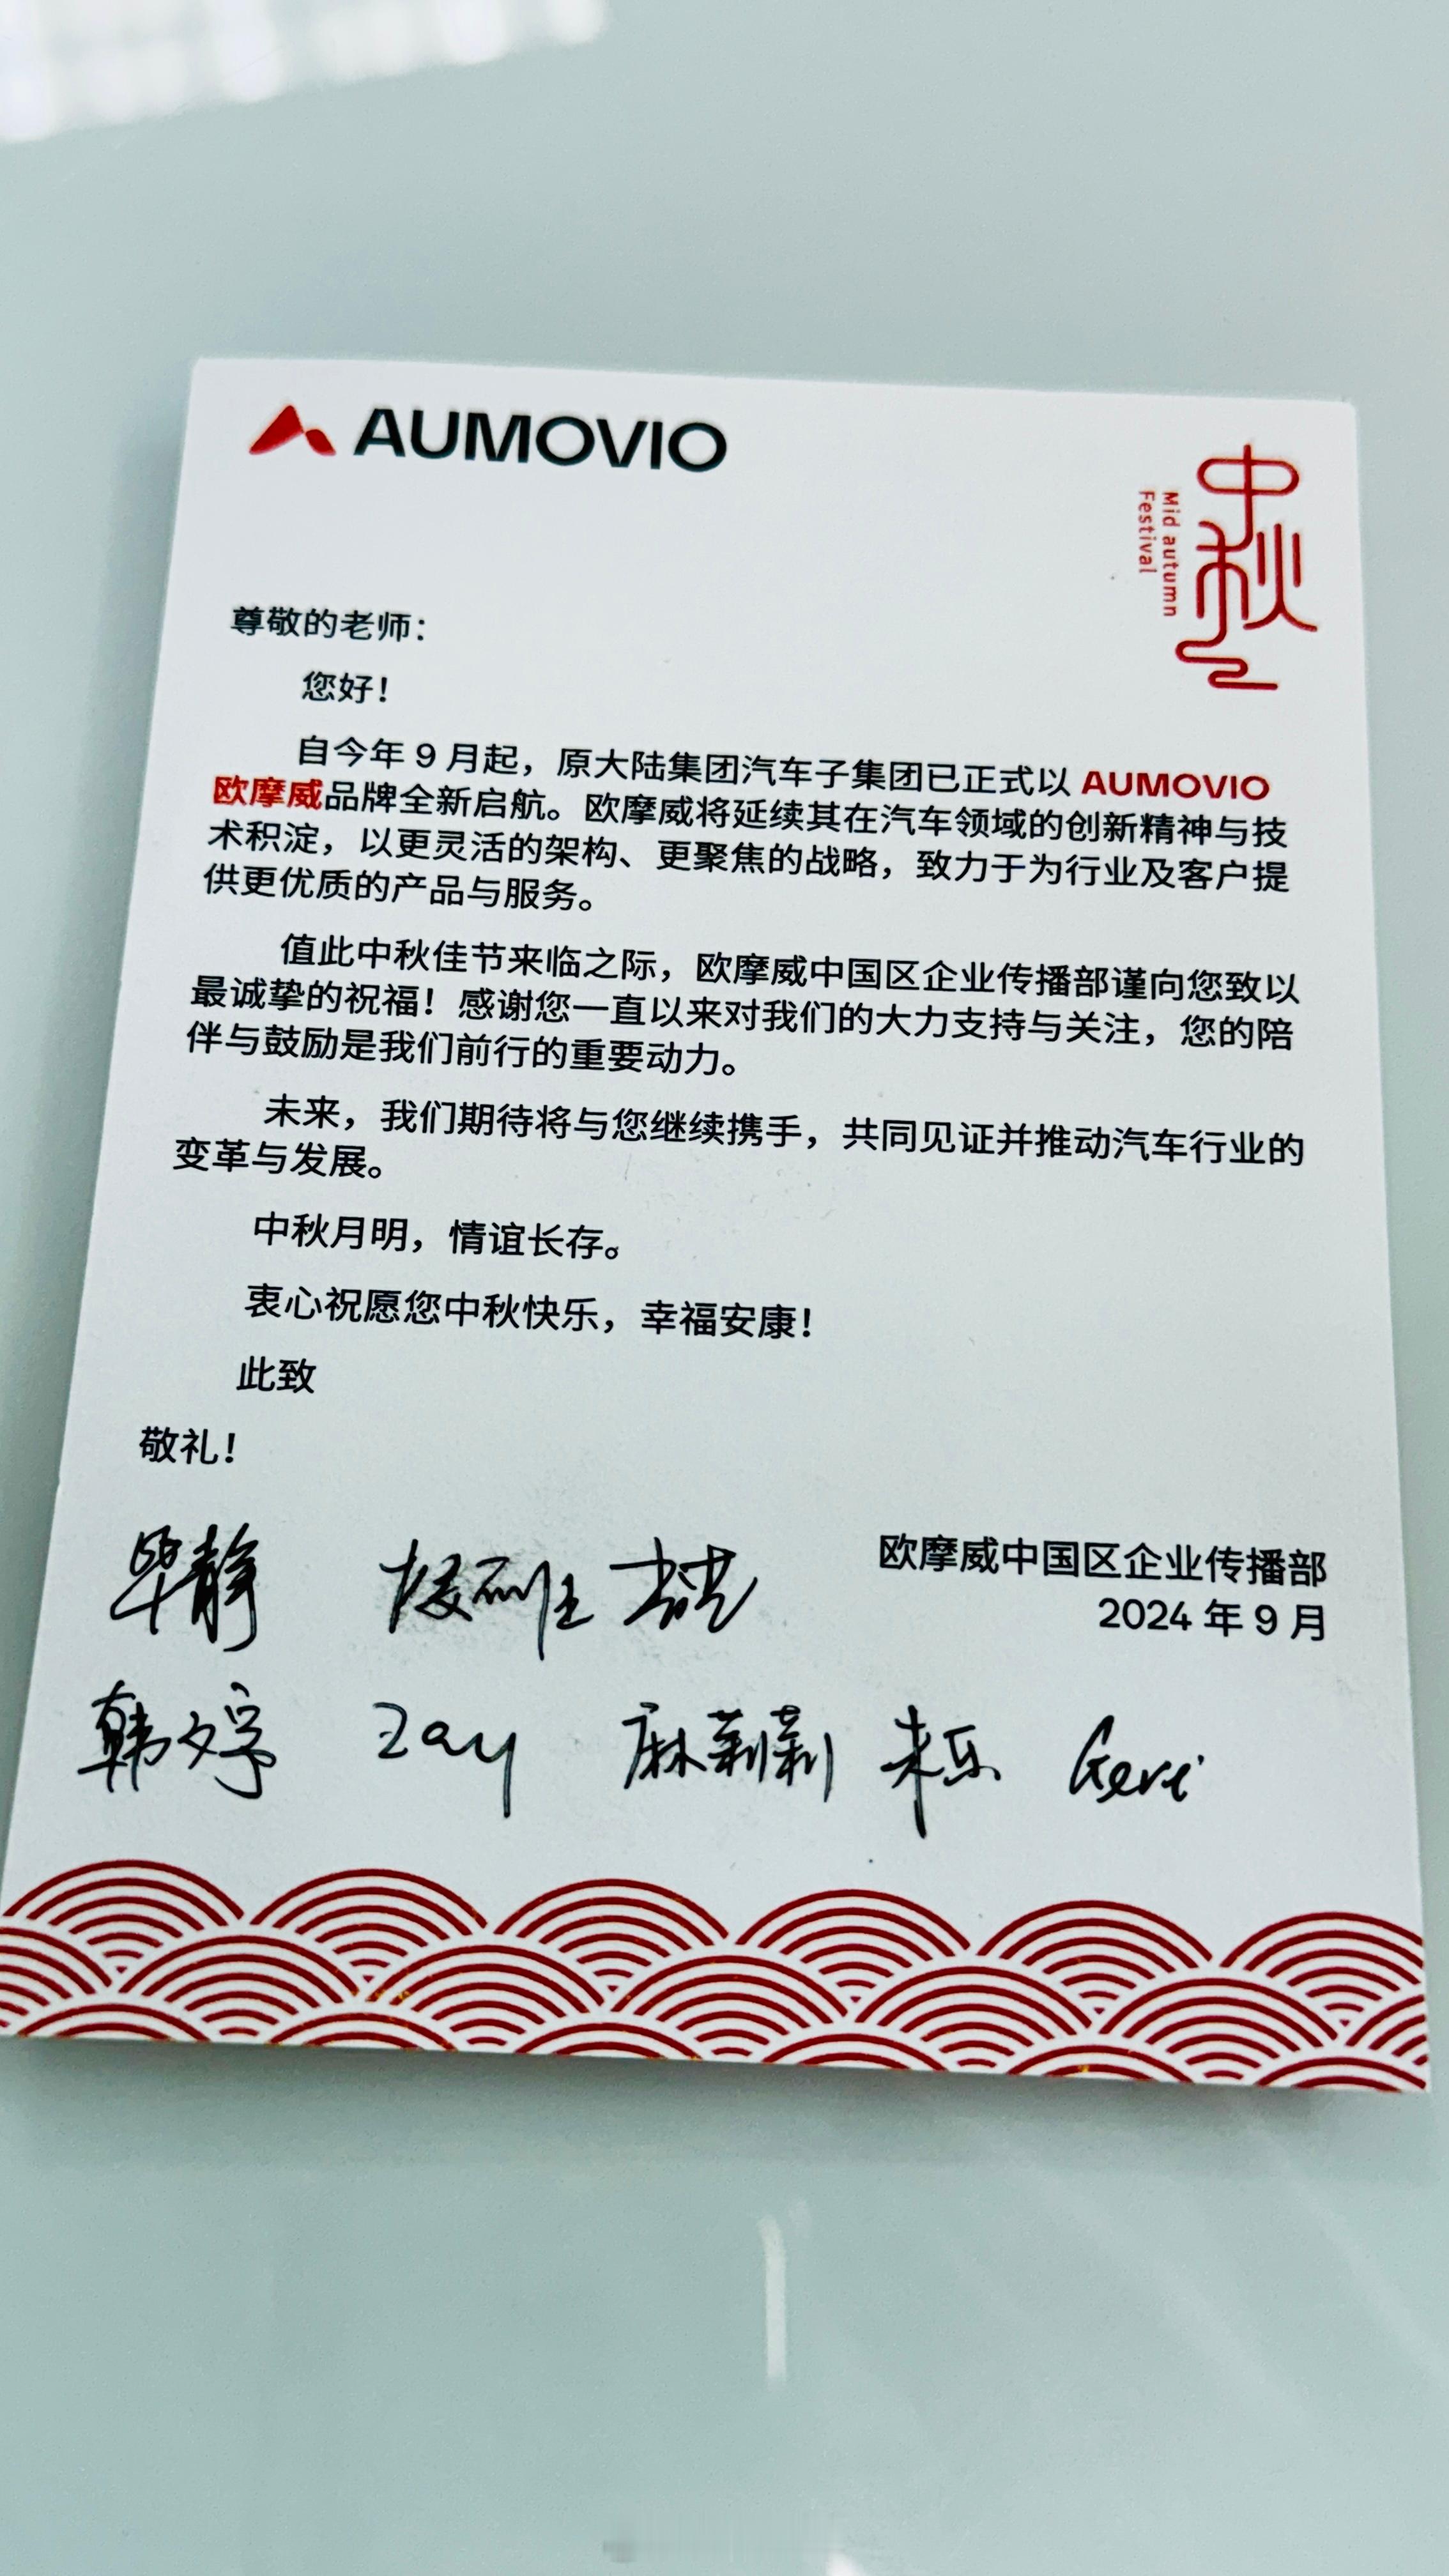 AUMOVIO
中秋
Mid autumn
Festival
尊敬的老师：
您好！
自今年 9 月起，原大陆集团汽车子集团已正式以 AUMOVIO
欧摩威品牌全新启航。欧摩威将延续其在汽车领域的创新精神与技
术积淀，以更灵活的架构、更聚焦的战略，致力于为行业及客户提
供更优质的产品与服务。
值此中秋佳节来临之际，欧摩威中国区企业传播部谨向您致以
最诚挚的祝福！感谢您一直以来对我们的大力支持与关注，您的陪
伴与鼓励是我们前行的重要动力。
未来，我们期待将与您继续携手，共同见证并推动汽车行业的
变革与发展。
中秋月明，情谊长存。
衷心祝愿您中秋快乐，幸福安康！
此致
敬礼！
欧摩威中国区企业传播部
2024 年 9 月
毕静
韩文婷 Zay 麻莉莉 朱乐